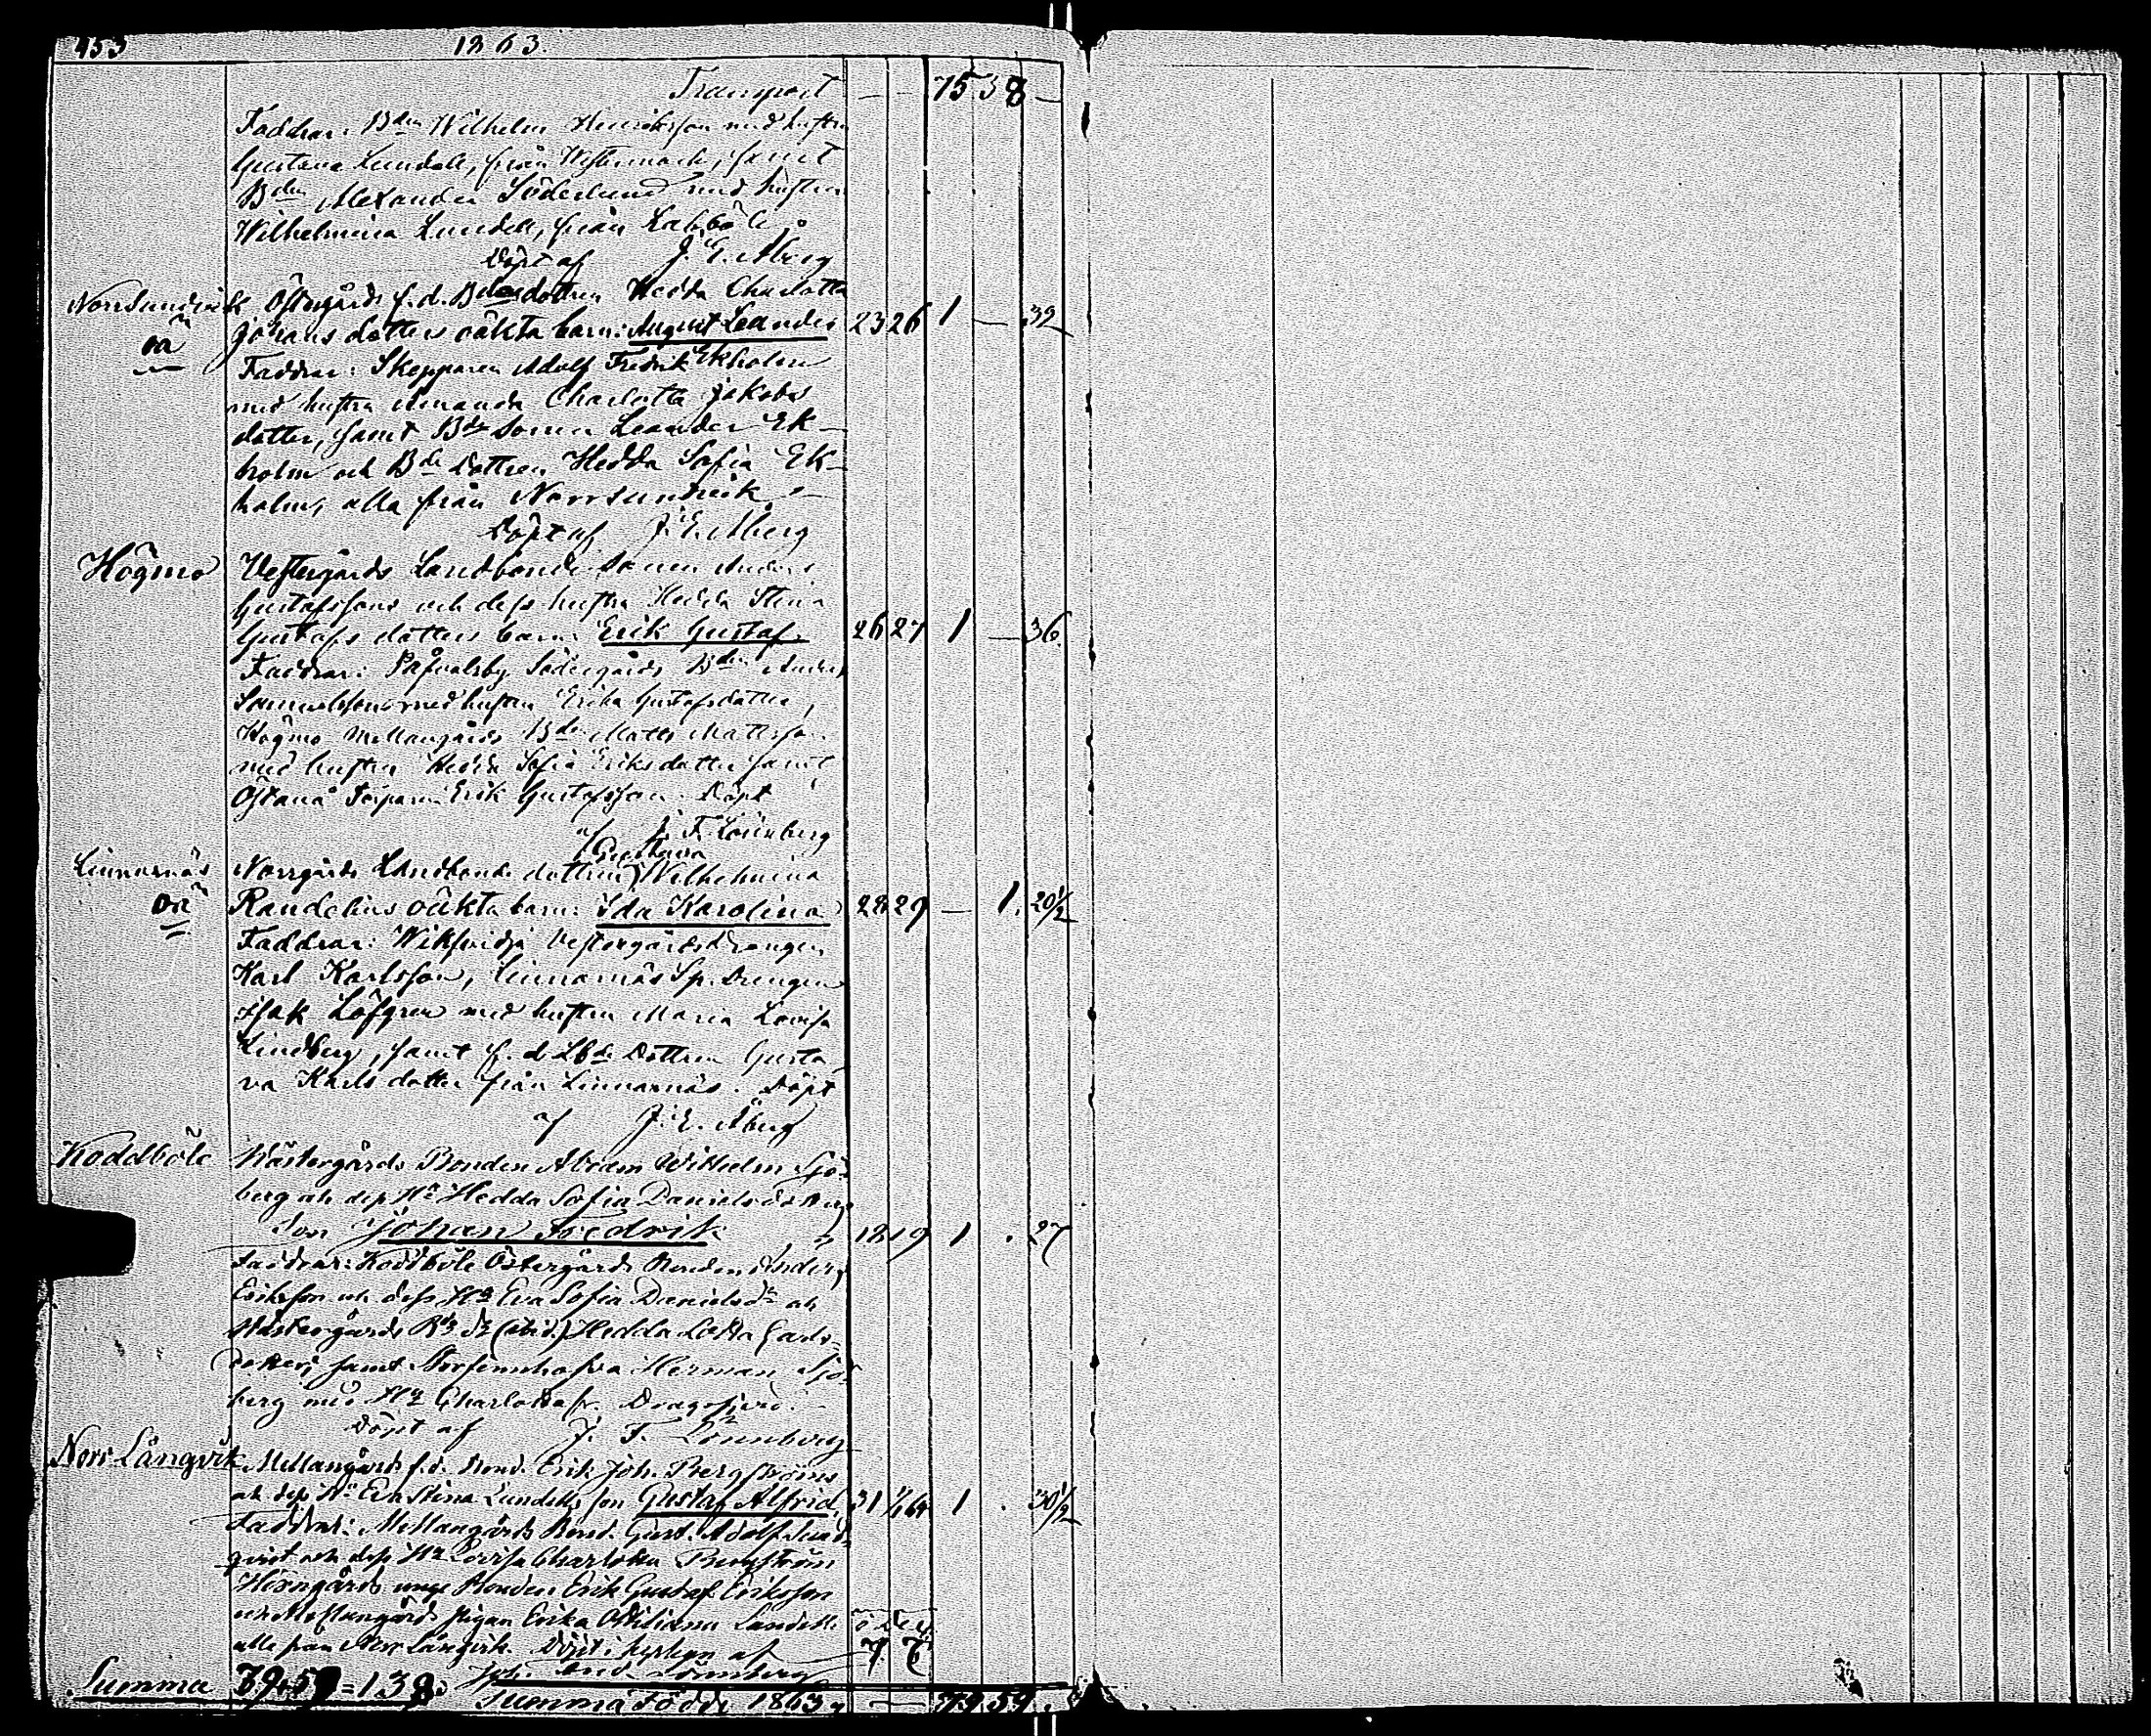 453 1863.
Transport — — 75 58 —
Faddrar: Bden Wilhelm Henriksson med hustru
Gustava Lundell, från Westermark, samt
Bden Alexander Söderlund med hustru
Wilhelmina Lundell, från Labböle
Döpt af J. E. Åberg
Norrsundvik Östergårds f. d. Bdedottren Hedda Charlotta
oä Johansdotters oäkta barn: August Leander 23 26 1 — 39
Faddrar: Skepparen Adolf Fredrik Ekholm
med hustru Amanda Charlotta Jakobs
dotter, samt Bde Sonen Leander Ek-
holm och Bde dottren Hedda Sofia Ek-
holm, alla från Norrsundvik
Döpt af J. E. Åberg
Högmo Vestergårds Landbondesonen Anders
Gustafssons och dess hustru Hedda Stina
Gustafsdotters barn: Erik Gustaf 26 27 1 — 36
Faddrar: Påfvalsby Södergårds Bden Anders
Samuelsson med hustru Erika Gustafsdotter,
Högmo Mellangårds Bden Matts Mattsson
med hustru Hedda Sofia Eriksdotter samt
Östanå Torparen Erik Gustafsson. Döpt
af J. F. Lönnberg
Gustava
Linnarnäs Norrgårds Landbonde dottren Wilhelmina
oä Randelins oäkta barn: Ida Karolina 28 29 — 1. 20½
Faddrar: Vestergårds Drengen
Karl Karlsson, Linnarnäs Sp. Drengen
Isak Löfgren med hustru Maria Lovisa
Lindberg, samt f. d. Lbde Dottren Gusta
va Karlsdotter från Linnarnäs. Döpt
af J. E. Åberg
Koddböle Wästergårds Bonden Abram Wilhelm Sjö-
berg och dess Ha Hedda Sofia Danielsdotters
Son Johan Fredrik 18 19 1 . 27
Faddrar: Koddböle Östergårds Bonden Anders
Eriksson och dess Ha Eva Sofia Danielsdr och
Wästergårds (ibid.) Hedda Lotta Carls-
dotter, samt Herman Sjö-
berg med Ha Charlotta fr. Dragsfjerd.
Döpt af J. F. Lönnberg
Norr Långvik Mellangårds f. d. Bond. Erik Joh. Bergströms
och dess Ha Eva Stina Lundells son Gustaf Alfrid 31 1/1 64 1 . 30½
Faddrar: Mellangårds Bond. Gust. Adolf Sund-
qvist och dess Ha Lovisa Charlotta Bergström
Hörngårds unge Bonden Erik Gustaf Eriksson
och Mellangårds pigan Erika Ottiliana Lundell
alla från Norr Långvik. Döpt i kyrkan af 7. 6
Joh. Fred. Lönnberg
Summa 79+59=138.
Summa Födde 1863, — 79 59.